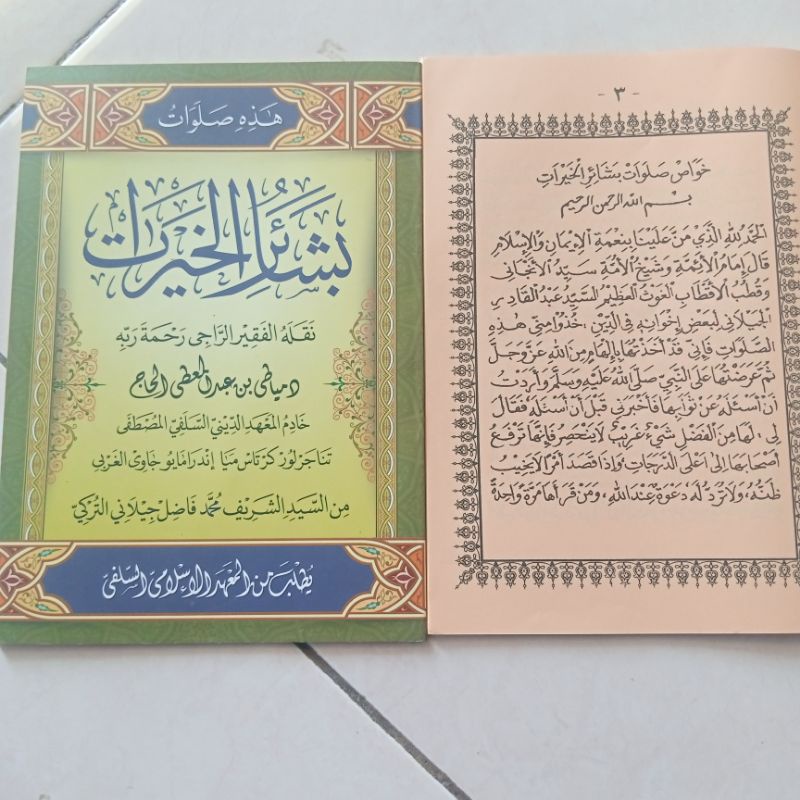 هٰذِهِ صَلَوَاتُ
بَشَائِرُ الْخَيْرَاتِ
نَقَلَهُ الْفَقِيرُ الرَّاجِى رَحْمَةَ رَبِّهِ
دمياطى بن عبد المعطى الحاج
خَادِمُ الْمَعْهَدِ الدِّيْنِيِّ السَّلَفِيِّ الْمُصْطَفَى
تناجر لور كرتاس مايا إندرامايو جاوى الغربي
مِنَ السَّيِّدِ الشَّرِيْفِ مُحَمَّد فَاضِل جِيْلَانِي التُّرْكِيّ
يُطْلَبُ مِنَ الْمَعْهَدِ الْإِسْلَامِىِّ السَّلَفِىِّ
- ٣ -
خَوَاصُ صَلَوَاتْ بَشَائِرِ الْخَيْرَاتِ
بِسْمِ اللهِ الرَّحْمٰنِ الرَّحِيْمِ
اَلْحَمْدُ لِلّٰهِ الَّذِيْ مَنَّ عَلَيْنَا بِنِعْمَةِ الْاِيْمَانِ وَالْاِسْلَامِ
قَالَ إِمَامُ الْأَئِمَّةِ وَشَيْخُ الْأُمَّةِ سَيِّدُ الْأَنْجَانِي
وَقُطْبُ الْأَقْطَابِ الْغَوْثُ الْعَظِيْمُ السَّيِّدُ عَبْدُ الْقَادِرِ
الْجَيْلَانِي لِبَعْضِ إِخْوَانِهِ فِي الدِّيْنِ : خُذُوْا مِنِّي هٰذِهِ
الصَّلَوَاتِ فَإِنِّي قَدْ أَخَذْتُهَا بِإِلْهَامٍ مِنَ اللهِ عَزَّ وَجَلَّ
ثُمَّ عَرَضْتُهَا عَلَى النَّبِيِّ صَلَّى اللهُ عَلَيْهِ وَسَلَّمَ وَأَرَدْتُ
أَنْ أَسْئَلَهُ عَنْ ثَوَابِهَا فَأَخْبَرَنِي قَبْلَ أَنْ أَسْئَلَهُ فَقَالَ
لِي : لَهَا مِنَ الْفَضْلِ شَيْءٌ غَرِيْبٌ لَا يَنْحَصِرُ فَإِنَّهَا تَرْفَعُ
أَصْحَابَهَا إِلَى أَعْلَى الدَّرَجَاتِ ، وَإِذَا قَصَدَ أَمْرًا لَا يَخِيْبُ
ظَنُّهُ ، وَلَا تُرَدُّ لَهُ دَعْوَةٌ عِنْدَ اللهِ ، وَمَنْ قَرَأَهَا مَرَّةً وَاحِدَةً